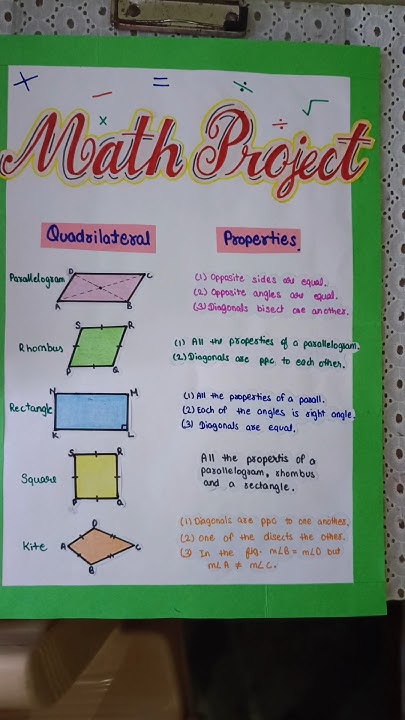 + − = ÷ √
× ÷
Math Project
Quadrilateral Properties
Parallelogram
D C
A B
(1) Opposite sides are equal.
(2) Opposite angles are equal.
(3) Diagonals bisect one another.
Rhombus
S R
P Q
(1) All the properties of a parallelogram.
(2) Diagonals are ppc to each other.
Rectangle
N M
K L
(1) All the properties of a parall.
(2) Each of the angles is right angle.
(3) Diagonals are equal.
Square
S R
P Q
All the propertis of a
parallelogram, rhombus
and a rectangle.
Kite
D
A C
B
(1) Diagonals are ppc to one another.
(2) One of the disects the other.
(3) In the fig. m∠B = m∠D but
m∠A ≠ m∠C.